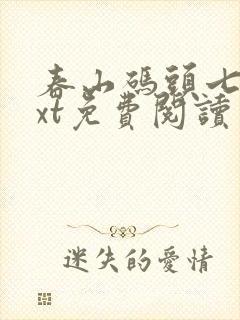 春山碼頭七
xt免費閱讀
迷失的愛情